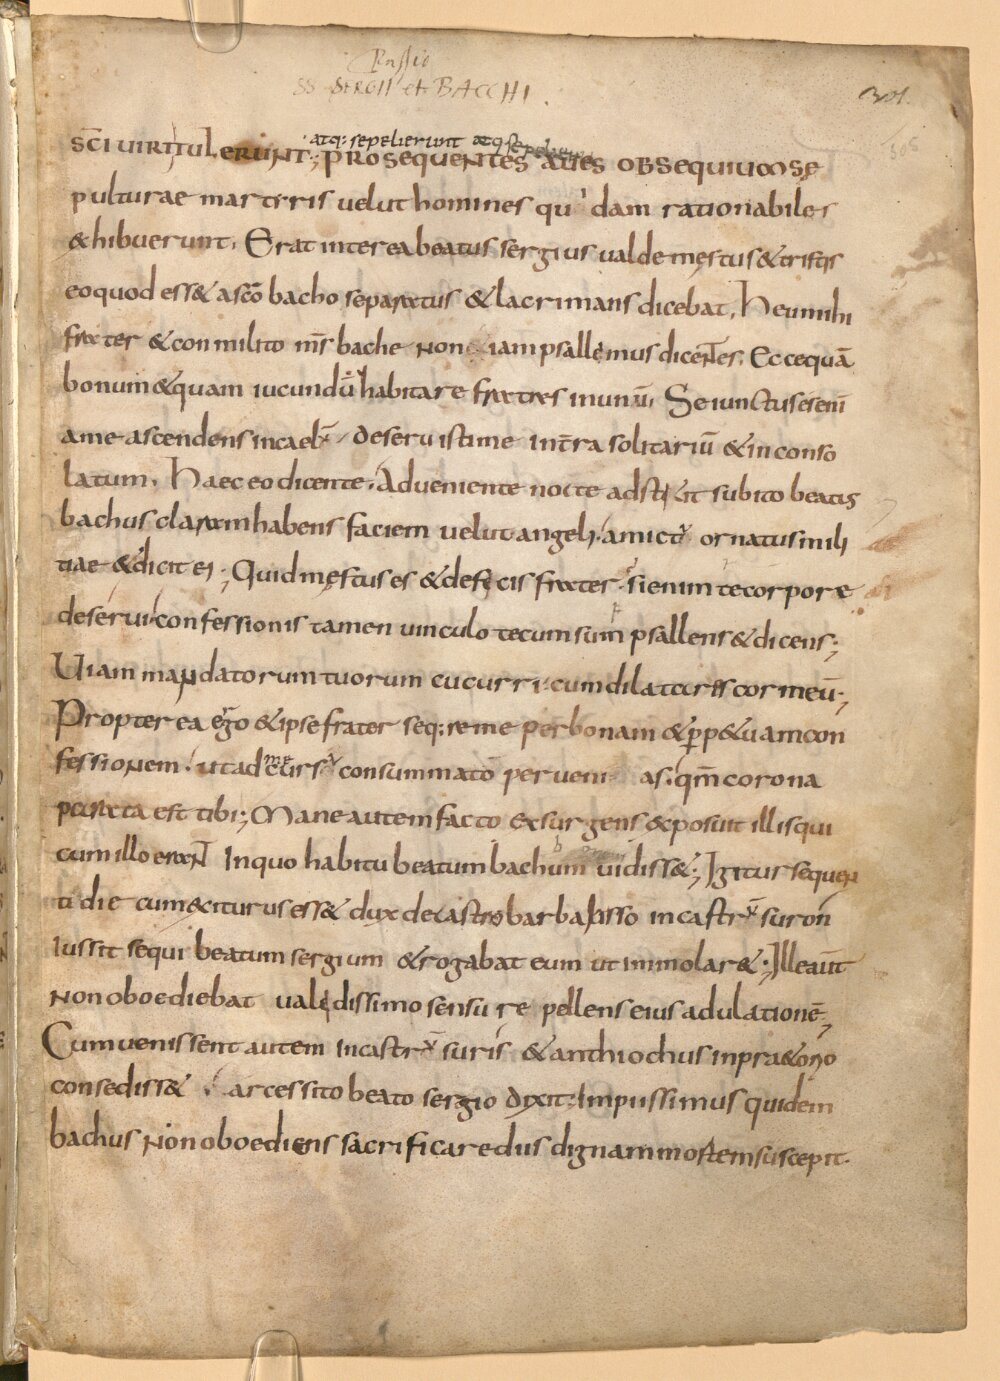 Passio
SS SERGII et BACCHI.
301.
305
atq: sepelierunt atq sepelierunt
SCI VIRI TULERUNT; PROSEQUENTES AUES OBSEQUIUM SE
pulturae martiris uelut homines quidam rationabiles
&hibuerunt. Erat interea beatus sergius ualde męstus & tristis
eo quod ess& a scō bacho separatus & lacrimans dicebat. Heu mihi
frater & conmilito mi̅s bache non iam psallemus dicentes. Ecce quā
bonum & quam iucundū habitare fratres in unū. Seiunctus es eni̅
a me ascendens in caelx̄ deseruisti me in tr̄ra solitariū & inconso
latum. Haec eo dicente. Adueniente nocte adstitit subito beatus
bachus claram habens faciem uelut angeli. amictu ornatus mili
tiae & dicit ei; Quid męstus es & deficis frater. si enim te corpore
deserui confessionis tamen uinculo tecum sum psallens & dicens;
Uiam mandatorum tuorum cucurri cum dilatares cor meū;
Propterea ego & ipse frater seq:re me per bonam & perp&uam con
fessionem. ut ad me cursu consummato peruenias. qm̄ corona
parata est tibi; Mane autem facto exsurgens exposuit illis qui
cum illo erant In quo habitu beatum bachum uidiss&; Igitur sequen
ti die cum exiturus ess& dux de castro barbalisso in castrx̄ suron
Iussit sequi beatum sergium & rogabat eum ut immolar&; Ille aūt
non oboediebat ualidissimo sensu repellens eius adulationē;
Cum uenissent autem in castrx̄ suris & anthiochus in pra&orio
consediss&. arcessito beato sergio dixit. Impiissimus quidem
bachus non oboediens sacrificare diis dignam mortem suscepit.